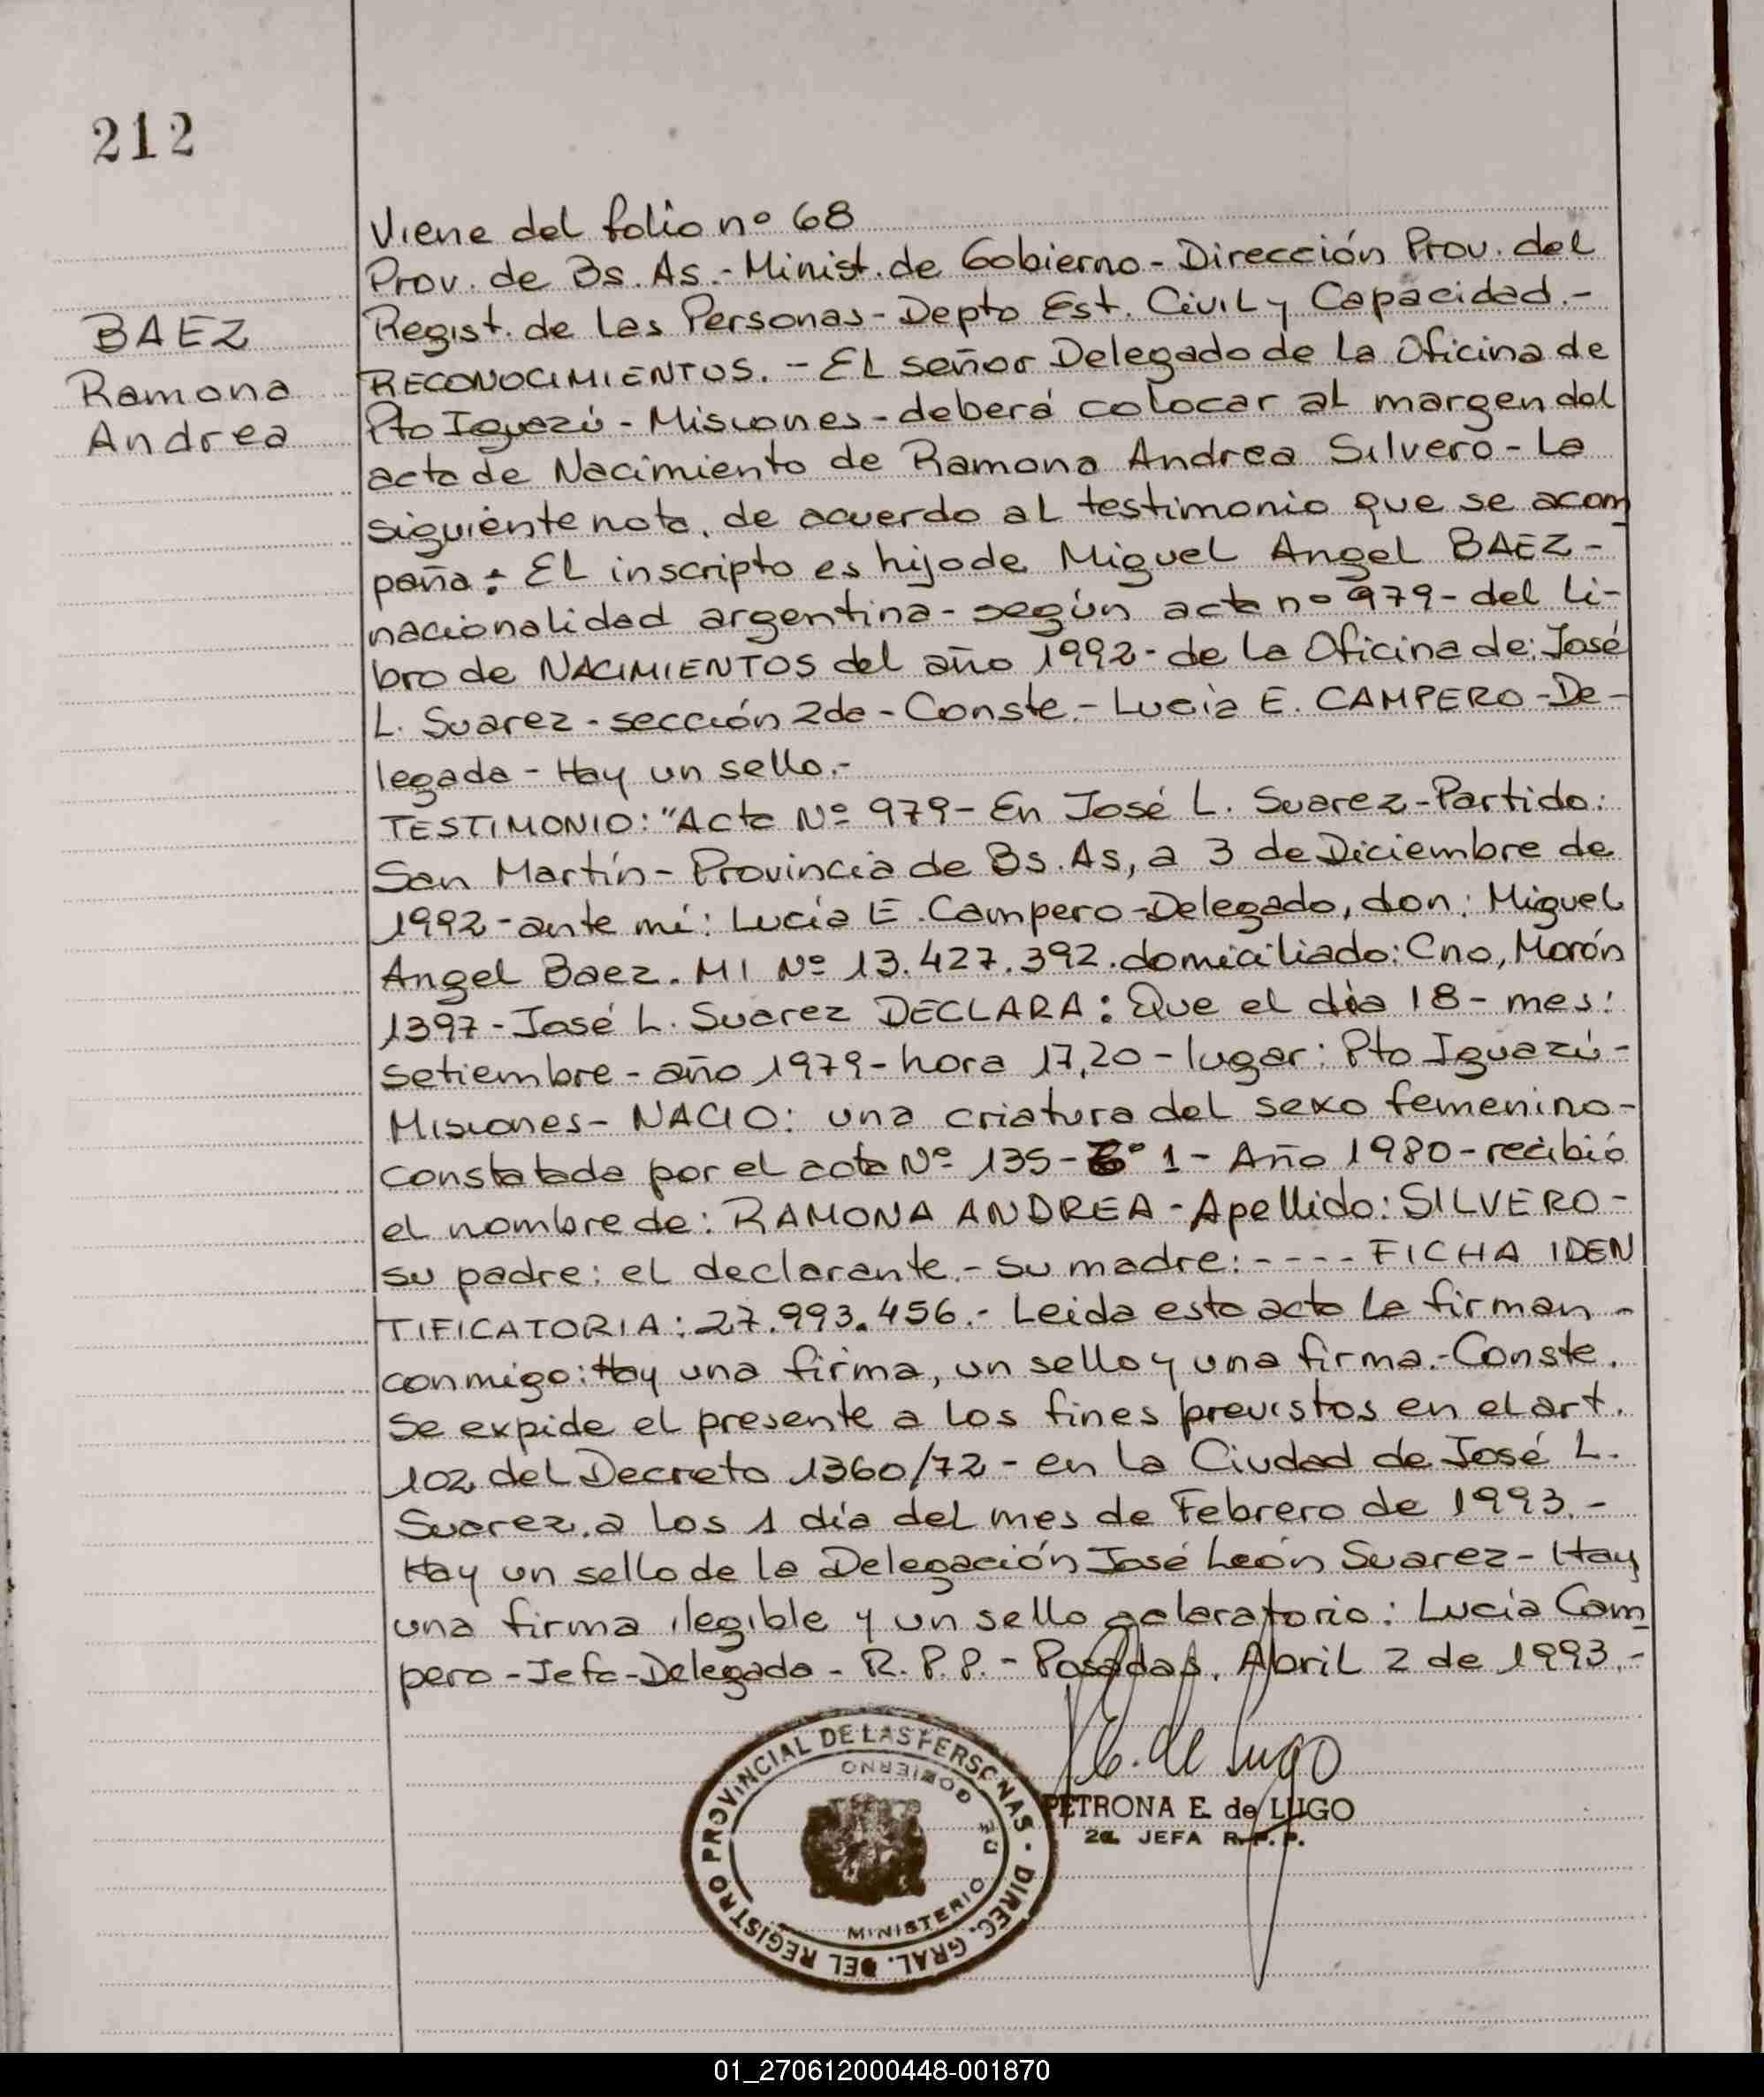 212
BAEZ
Ramona
Andrea
Viene del folio nº 68
Prov. de Bs. As. - Minist. de Gobierno - Dirección Prov. del
Regist. de las Personas - Depto Est. Civil y Capacidad. -
RECONOCIMIENTOS. - El señor Delegado de la Oficina de
Pto Iguazú - Misiones - deberá colocar al margen del
acta de Nacimiento de Ramona Andrea Silvero - La
siguiente nota, de acuerdo al testimonio que se acom
paña: El inscripto es hijo de Miguel Angel BAEZ -
nacionalidad argentina - según acta nº 979 - del li-
bro de NACIMIENTOS del año 1992 - de la Oficina de: José
L. Suarez - sección 2da - Conste. - Lucía E. CAMPERO - De-
legada - Hay un sello. -
TESTIMONIO: "Acta Nº 979 - En José L. Suarez - Partido:
San Martín - Provincia de Bs. As, a 3 de Diciembre de
1992 - ante mí: Lucía E. Campero - Delegado, don: Miguel
Angel Baez. MI Nº 13.427.392. domiciliado: Cno, Morón
1397 - José L. Suarez DECLARA: Que el día 18 - mes:
setiembre - año 1979 - hora 17,20 - lugar: Pto Iguazú -
Misiones - NACIO: una criatura del sexo femenino -
constatada por el acta Nº 135 - Tº 1 - Año 1980 - recibió
el nombre de: RAMONA ANDREA - Apellido: SILVERO -
su padre: el declarante. - su madre: - - - - FICHA IDEN
TIFICATORIA: 27.993.456. - Leida esta acta la firman -
conmigo: Hay una firma, un sello y una firma. - Conste.
Se expide el presente a los fines previstos en el art.
102 del Decreto 1360/72 - en la Ciudad de José L.
Suarez. a los 1 día del mes de Febrero de 1993. -
Hay un sello de la Delegación José León Suarez - Hay
una firma ilegible y un sello aclaratorio: Lucía Cam
pero - Jefa - Delegada - R. P. P. - Posadas, Abril 2 de 1993. -
P. E. de Lugo
PETRONA E. de LUGO
2a. JEFA R.P.P.
DIREC. GRAL. DEL REGISTRO PROVINCIAL DE LAS PERSONAS -
MINISTERIO DE GOBIERNO
01_270612000448-001870